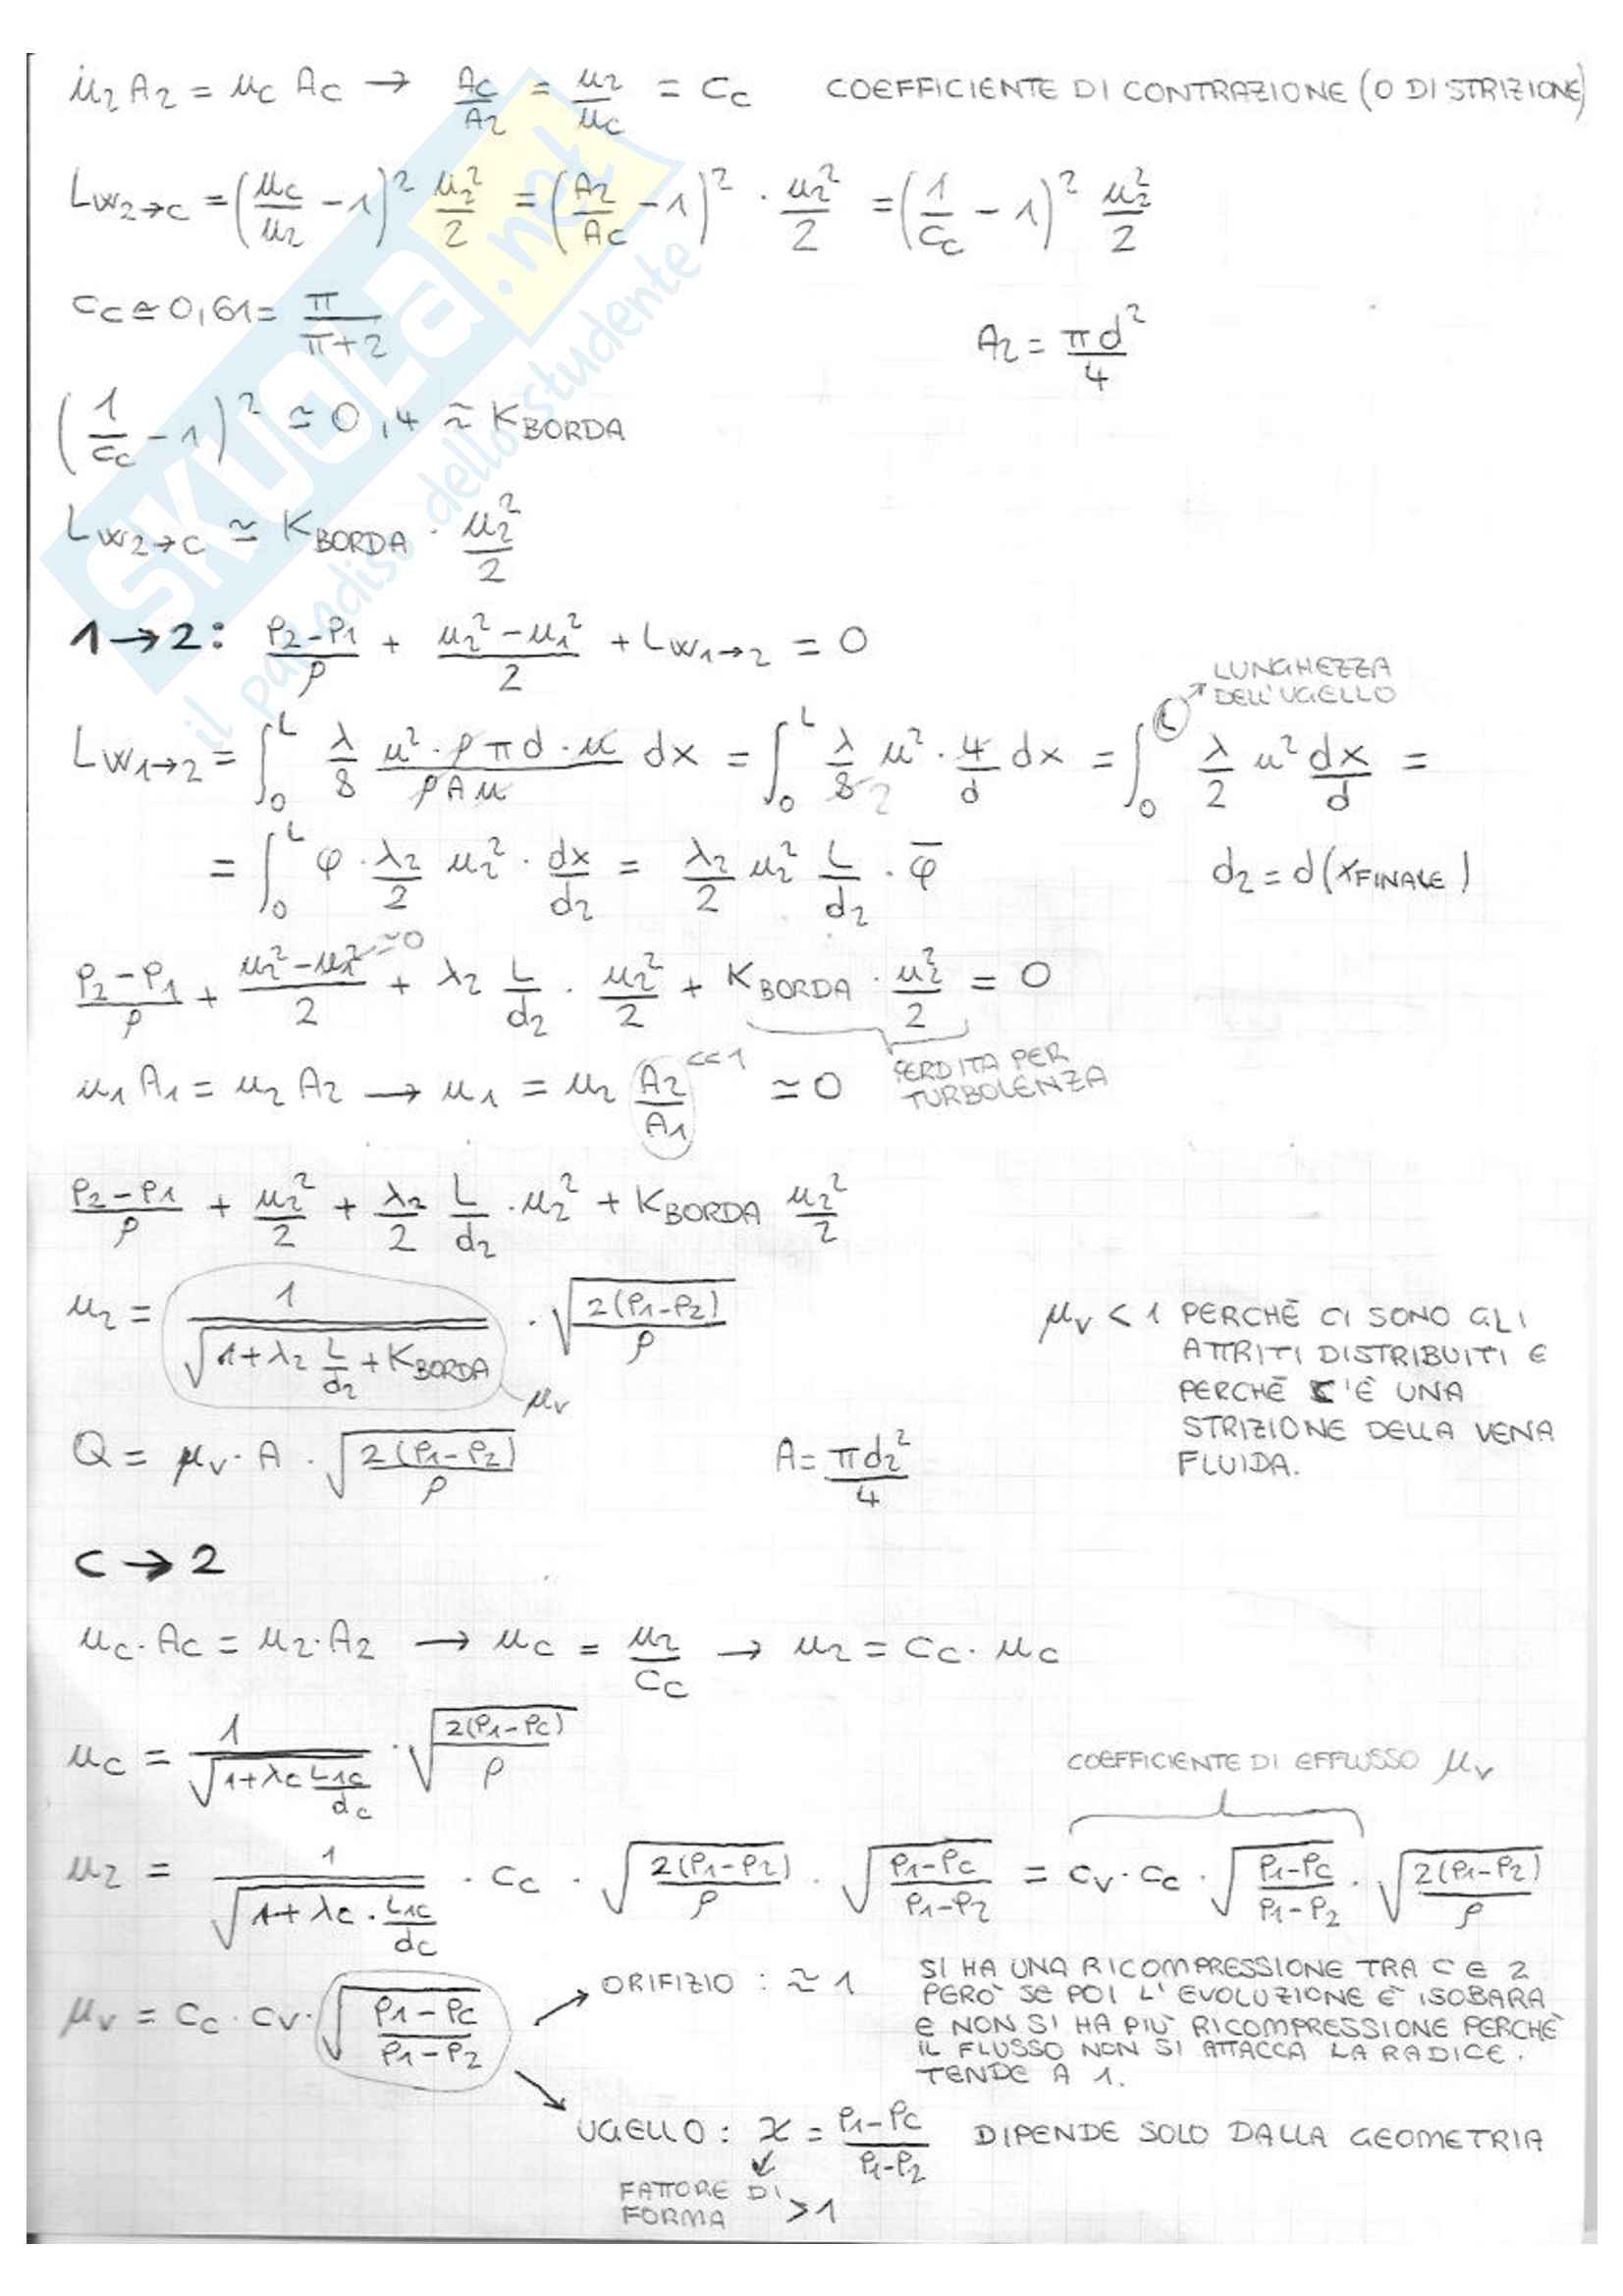 u₂ A₂ = u_C A_C → A_C/A₂ = u₂/u_C = C_C COEFFICIENTE DI CONTRAZIONE (O DI STRIZIONE)
L_{W2→C} = (u_C/u₂ - 1)² u₂²/2 = (A₂/A_C - 1)² · u₂²/2 = (1/C_C - 1)² u₂²/2
C_C ≃ 0,61 = π/(π+2)
A₂ = πd²/4
(1/C_C - 1)² ≃ 0,4 ≈ K_BORDA
L_{W2→C} ≃ K_BORDA · u₂²/2
1→2: (P₂-P₁)/ρ + (u₂²-u₁²)/2 + L_{W1→2} = 0
LUNGHEZZA
DELL'UGELLO
L_{W1→2} = ∫₀^L λ/8 (u²·ρ πd·u)/(ρAu) dx = ∫₀^L λ/8 2 u² · 4/d dx = ∫₀^L λ/2 u² dx/d =
= ∫₀^L φ · λ₂/2 u₂² · dx/d₂ = λ₂/2 u₂² L/d₂ · φ̄
d₂ = d(x_FINALE)
(P₂-P₁)/ρ + (u₂²-u₁²)/2 ≃0 + λ₂ L/d₂ · u₂²/2 + K_BORDA · u₂²/2 = 0
PERDITA PER
TURBOLENZA
u₁ A₁ = u₂ A₂ → u₁ = u₂ A₂/A₁ <<1 ≃ 0
(P₂-P₁)/ρ + u₂²/2 + λ₂/2 L/d₂ · u₂² + K_BORDA u₂²/2
u₂ = 1/√(1+λ₂ L/d₂ + K_BORDA) · √(2(P₁-P₂)/ρ)
μ_v
μ_v < 1 PERCHÉ CI SONO GLI
ATTRITI DISTRIBUITI E
PERCHÉ C'È UNA
STRIZIONE DELLA VENA
FLUIDA.
Q = μ_v · A · √(2(P₁-P₂)/ρ)
A = πd₂²/4
C → 2
u_C · A_C = u₂ · A₂ → u_C = u₂/C_C → u₂ = C_C · u_C
u_C = 1/√(1+λ_C L_{1C}/d_C) · √(2(P₁-P_C)/ρ)
COEFFICIENTE DI EFFLUSSO μ_v
u₂ = 1/√(1+λ_C · L_{1C}/d_C) · C_C · √(2(P₁-P₂)/ρ) · √((P₁-P_C)/(P₁-P₂)) = C_V · C_C · √((P₁-P_C)/(P₁-P₂)) · √(2(P₁-P₂)/ρ)
μ_v = C_C · C_V · √((P₁-P_C)/(P₁-P₂))
ORIFIZIO : ≃ 1
SI HA UNA RICOMPRESSIONE TRA C E 2
PERÒ SE POI L'EVOLUZIONE È ISOBARA
E NON SI HA PIÙ RICOMPRESSIONE PERCHÉ
IL FLUSSO NON SI ATTACCA LA RADICE.
TENDE A 1.
UGELLO : χ = (P₁-P_C)/(P₁-P₂) DIPENDE SOLO DALLA GEOMETRIA
FATTORE DI
FORMA >1
SKUOLA.net
il paradiso dello studente